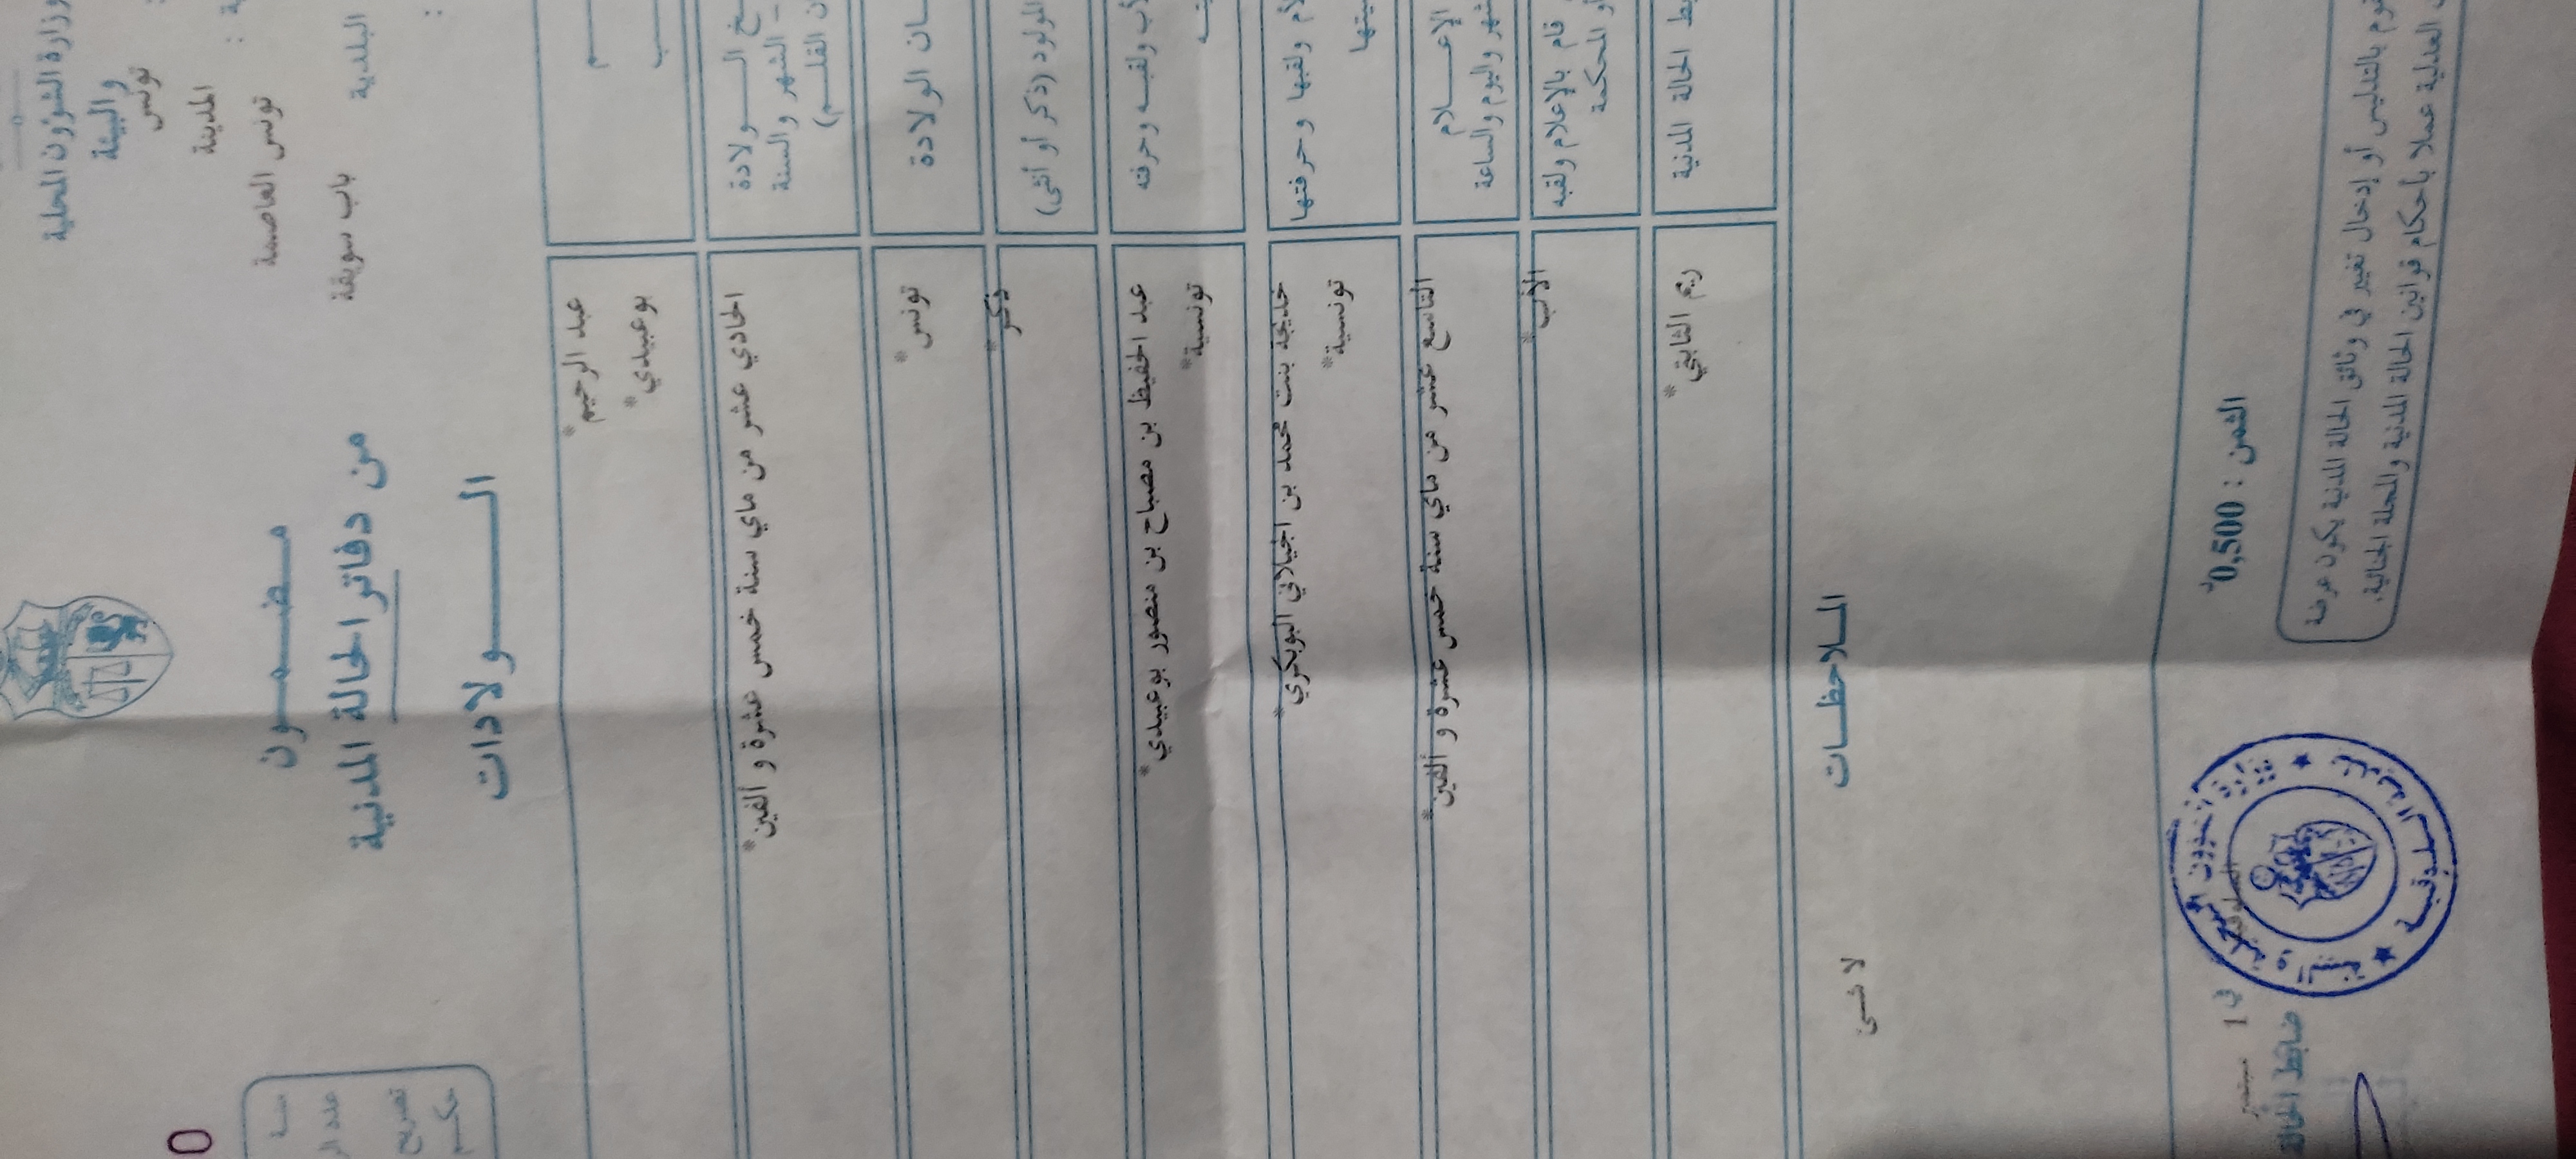 وزارة الشؤون المحلية
والبيئة
تونس
المدينة
تونس العاصمة
باب سويقة
البلدية
مضمون
من دفاتر الحالة المدنية
الولادات
عدد
تصريح
حكم
عبد الرحيم*
بوعبيدي*
الولادة
الشهر والسنة
القلم)
الحادي عشر من ماي سنة خمس عشرة و ألفين*
الولادة
تونس*
المولود (ذكر أو أنثى)
ذكر*
ولقبه وحرفته
عبد الحفيظ بن مصباح بن منصور بوعبيدي*
تونسية*
ولقبها وحرفتها
خديجة بنت محمد بن الجيلاني البوبكري*
تونسية*
الإعلام
واليوم والساعة
التاسع عشر من ماي سنة خمس عشرة و ألفين*
قام بالإعلام ولقبه
أو المحكمة
الأب*
الحالة المدنية
ريم الثابتي*
الملاحظات
لا شئ
الثمن : 0,500
في 1 سبتمبر
ضابط الحالة
بالتدليس أو إدخال تغيير في وثائق الحالة المدنية يكون عرضة
العدلية عملا بأحكام قوانين الحالة المدنية والمجلة الجنائية.